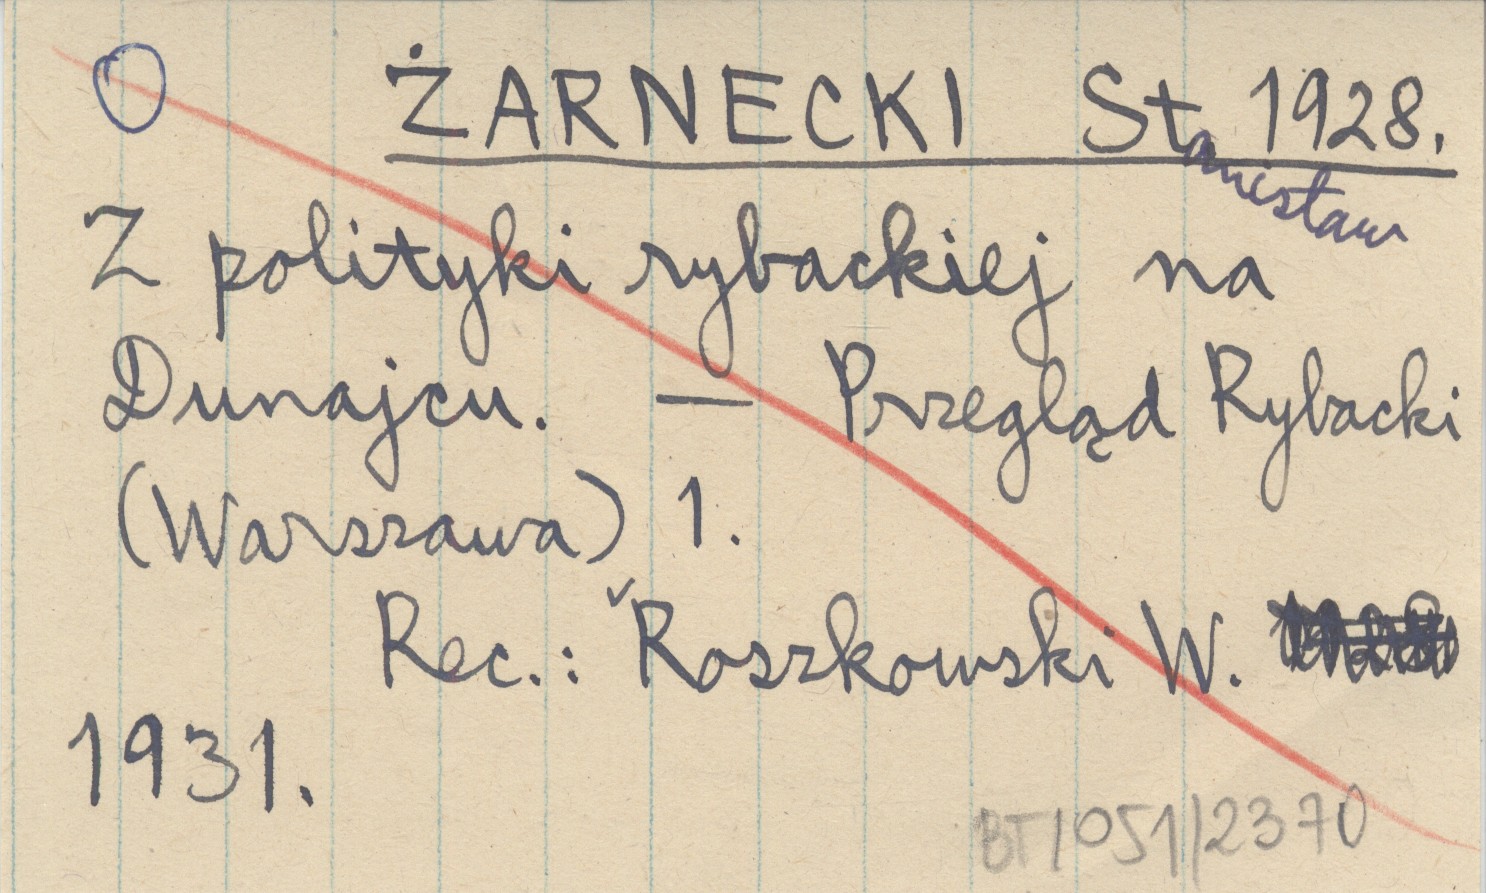 ŻARNECKI Stanisław 1928.
Z polityki rybackiej na
Dunajcu. — Przegląd Rybacki
(Warszawa) 1.
Rec.: Roszkowski W.
1931.
BT/051/2370